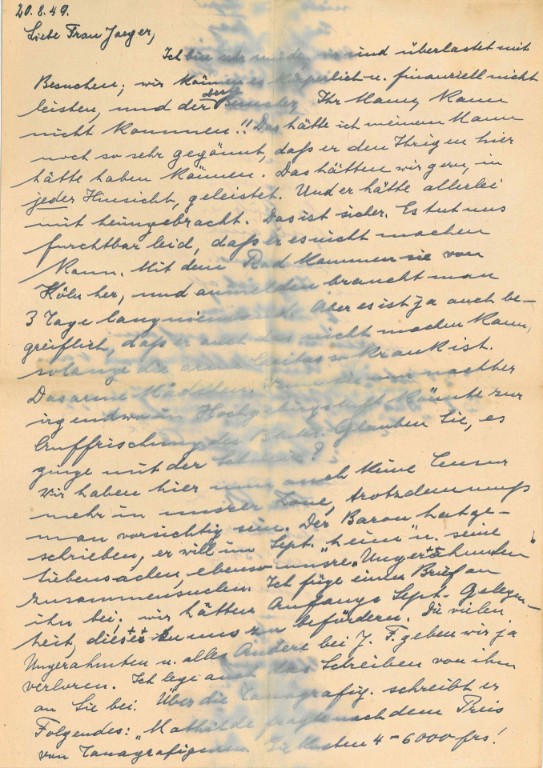 20.8.49.
Liebe Frau Jaeger,
Ich bin sehr müde, sind überlastet mit
Besuchen; wir können es körperlich u. finanziell nicht
leisten, und der Ihr Mann, kann
nicht kommen!! Das hätte ich meinem Mann
noch so sehr gegönnt, daß er den Ihrigen hier
hätte haben können. Das hätten wir gern, in
jeder Hinsicht, geleistet. Und er hätte allerlei
mit heimgebracht. Das ist sicher. Es tut uns
furchtbar leid, daß er es nicht machen
kann. Mit dem Rad kommen sie von
Köln her, und anmelden braucht man
3 Tage lang Aber es ist ja auch be-
greiflich, daß er auch das nicht machen kann,
solange die arme so krank ist.
Das arme Mädchen
irgendwann Hochgebirgsluft könnte zur
Auffrischung des Glauben Sie, es
ginge mit der Schweiz?
Wir haben hier nun auch keine Censur
mehr in unsrer Zone, trotzdem muß
man vorsichtig sein. Der Baron hat ge-
schrieben, er will im Sept. "heim" u. seine
Siebensachen, ebenso unsre
zusammensuchen. Ich füge einen Brief an
ihn bei. Wir hätten Anfangs Sept. Gelegen-
heit, zu uns zu befördern. Die vielen
Ungerahmten u. alles Andere bei J. F. geben wir ja
verloren. Ich lege auch das Schreiben von ihm
an Sie bei. Über die Tanagrafig. schreibt er
Folgendes: "Mathilde fragte nach dem Preis
von Tanagrafiguren. Sie kosten 4-6000 frs!